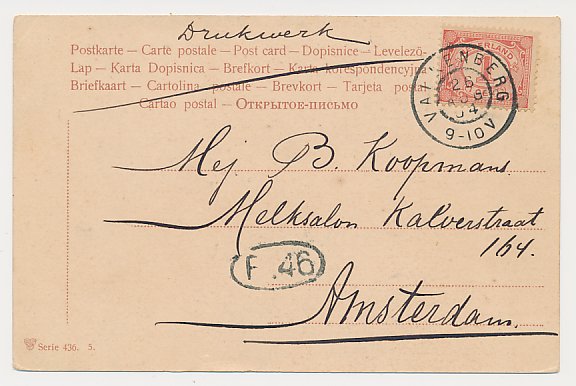 Drukwerk
Postkarte – Carte postale – Post card – Dopisnice – Levelező-
Lap – Karta Dopisnica – Brefkort – Karta korespondencyjna
Briefkaart – Cartolina postale – Brevkort – Tarjeta postal
Cartao postal – Открытое-письмо
VALKENBERG
25
04
9-10V
Mej B. Koopmans.
Melksalon Kalverstraat
164.
F.46
Amsterdam.
Serie 436. 5.